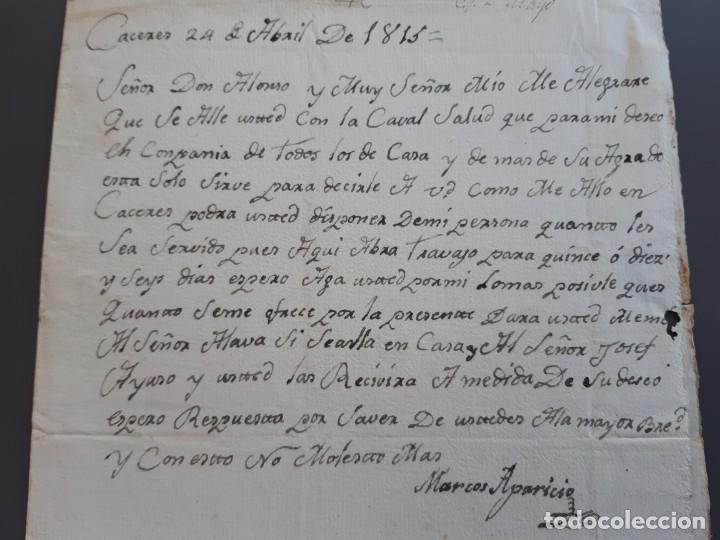 Caceres 24 de Abril De 1815=
Señor Don Alonso y Muy Señor Mio Me Alegrare
Que Se Alle usted Con la Caval Salud que para mi deseo
En Conpania de todos los de Casa y de mas de Su Agrado
esta Solo Sirve para decirle A vd Como Me Allo en
Caceres podra usted disponer Demi persona quanto les
Sea Servido pues Aqui Abra travajo para quince ó diez
y Seys dias espero Aga usted por mi Lomas posivle ques
Quanto Seme ofrece por la presente Dara usted Memo
Al Señor Alava Si Sealla en Casa y Al Señor Josef
Ayuso y usted las Recivira A medida De Su deseo
espero Respuesta por Saver De ustedes Ala mayor Bred
y Con esto No Molesto Mas
Marcos Aparicio
todocoleccion